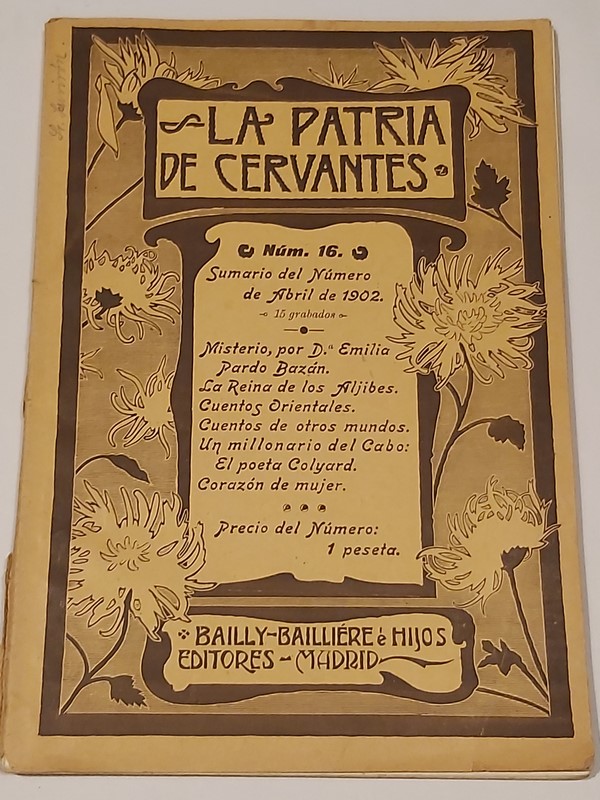 LA PATRIA
DE CERVANTES
Núm. 16.
Sumario del Número
de Abril de 1902.
15 grabados
Misterio, por D.ª Emilia
Pardo Bazán.
La Reina de los Aljibes.
Cuentos Orientales.
Cuentos de otros mundos.
Un millonario del Cabo:
El poeta Colyard.
Corazón de mujer.
Precio del Número:
1 peseta.
BAILLY-BAILLIÉRE è HIJOS
EDITORES - MADRID